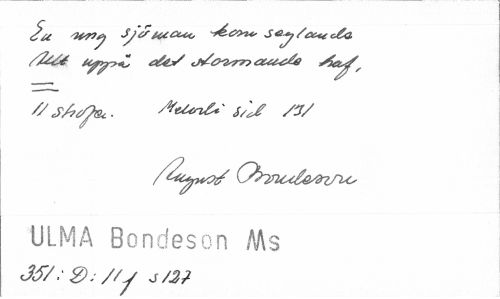 En ung sjöman kom seglande
Allt uppå det stormande haf.
11 strofer. Melodi sid 131
August Bondeson
ULMA Bondeson Ms
351: D: 11 f s 127